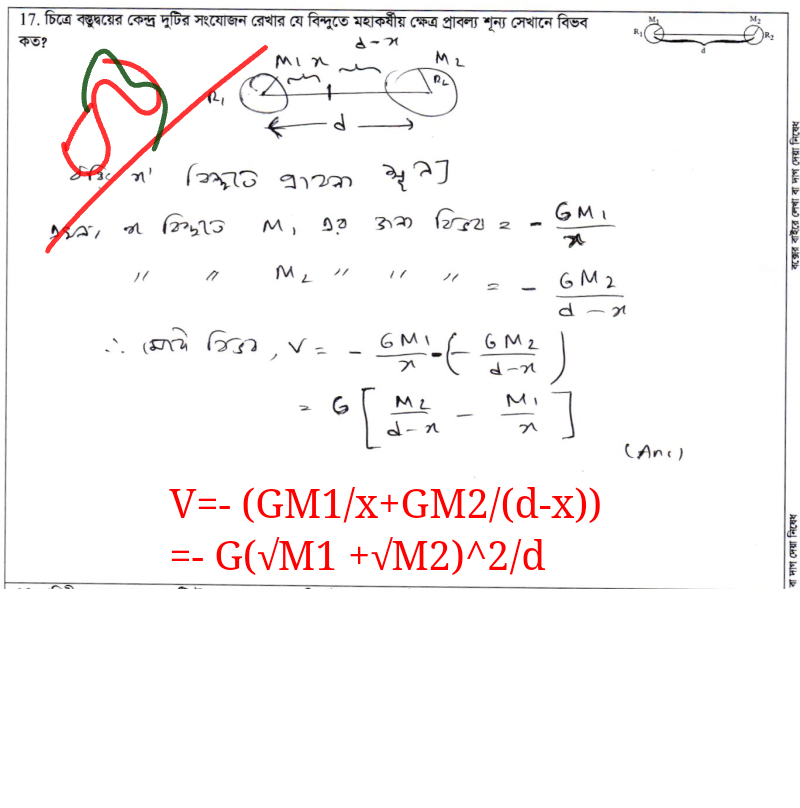 17. চিত্রে বস্তুদ্বয়ের কেন্দ্র দুটির সংযোজন রেখার যে বিন্দুতে মহাকর্ষীয় ক্ষেত্র প্রাবল্য শূন্য সেখানে বিভব
কত?
M₁ M₂
R₁ R₂
d
d-x
M₁ x M₂
R₁ R₂
d
x' বিন্দুতে প্রাবল্য শূন্য]
এখন, x বিন্দুতে M₁ এর জন্য বিভব = - GM₁/x
〃 〃 M₂ 〃 〃 〃 = - GM₂/(d-x)
∴ মোট বিভব, V = - GM₁/x - (- GM₂/(d-x))
= G [M₂/(d-x) - M₁/x]
(Ans)
V=- (GM1/x+GM2/(d-x))
=- G(√M1 +√M2)^2/d
বক্সের বাইরে লেখা বা দাগ দেয়া নিষেধ
বা দাগ দেয়া নিষেধ